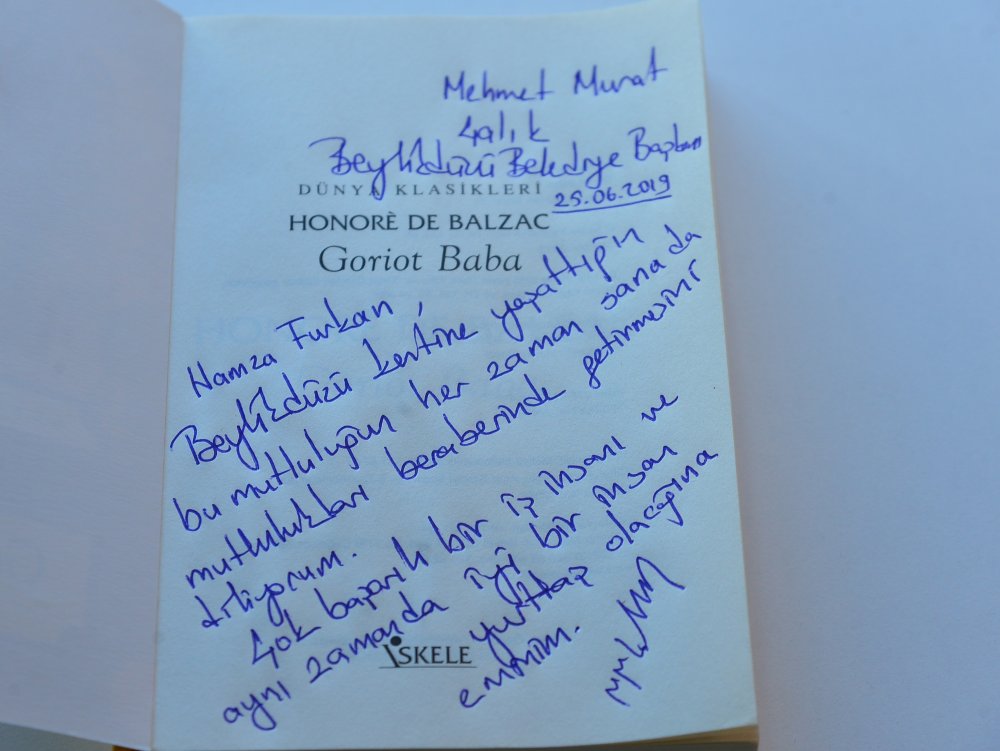 Mehmet Murat
Çalık
Beylikdüzü Belediye Başkanı
25.06.2019
DÜNYA KLASİKLERİ
HONORÈ DE BALZAC
Goriot Baba
Hamza Furkan,
Beylikdüzü kentine yaşattığın
bu mutluluğun her zaman sana da
mutlulukları beraberinde getirmesini
diliyorum.
Çok başarılı bir iş insanı ve
aynı zamanda iyi bir insan
yurttaş olacağına
eminim.
İSKELE